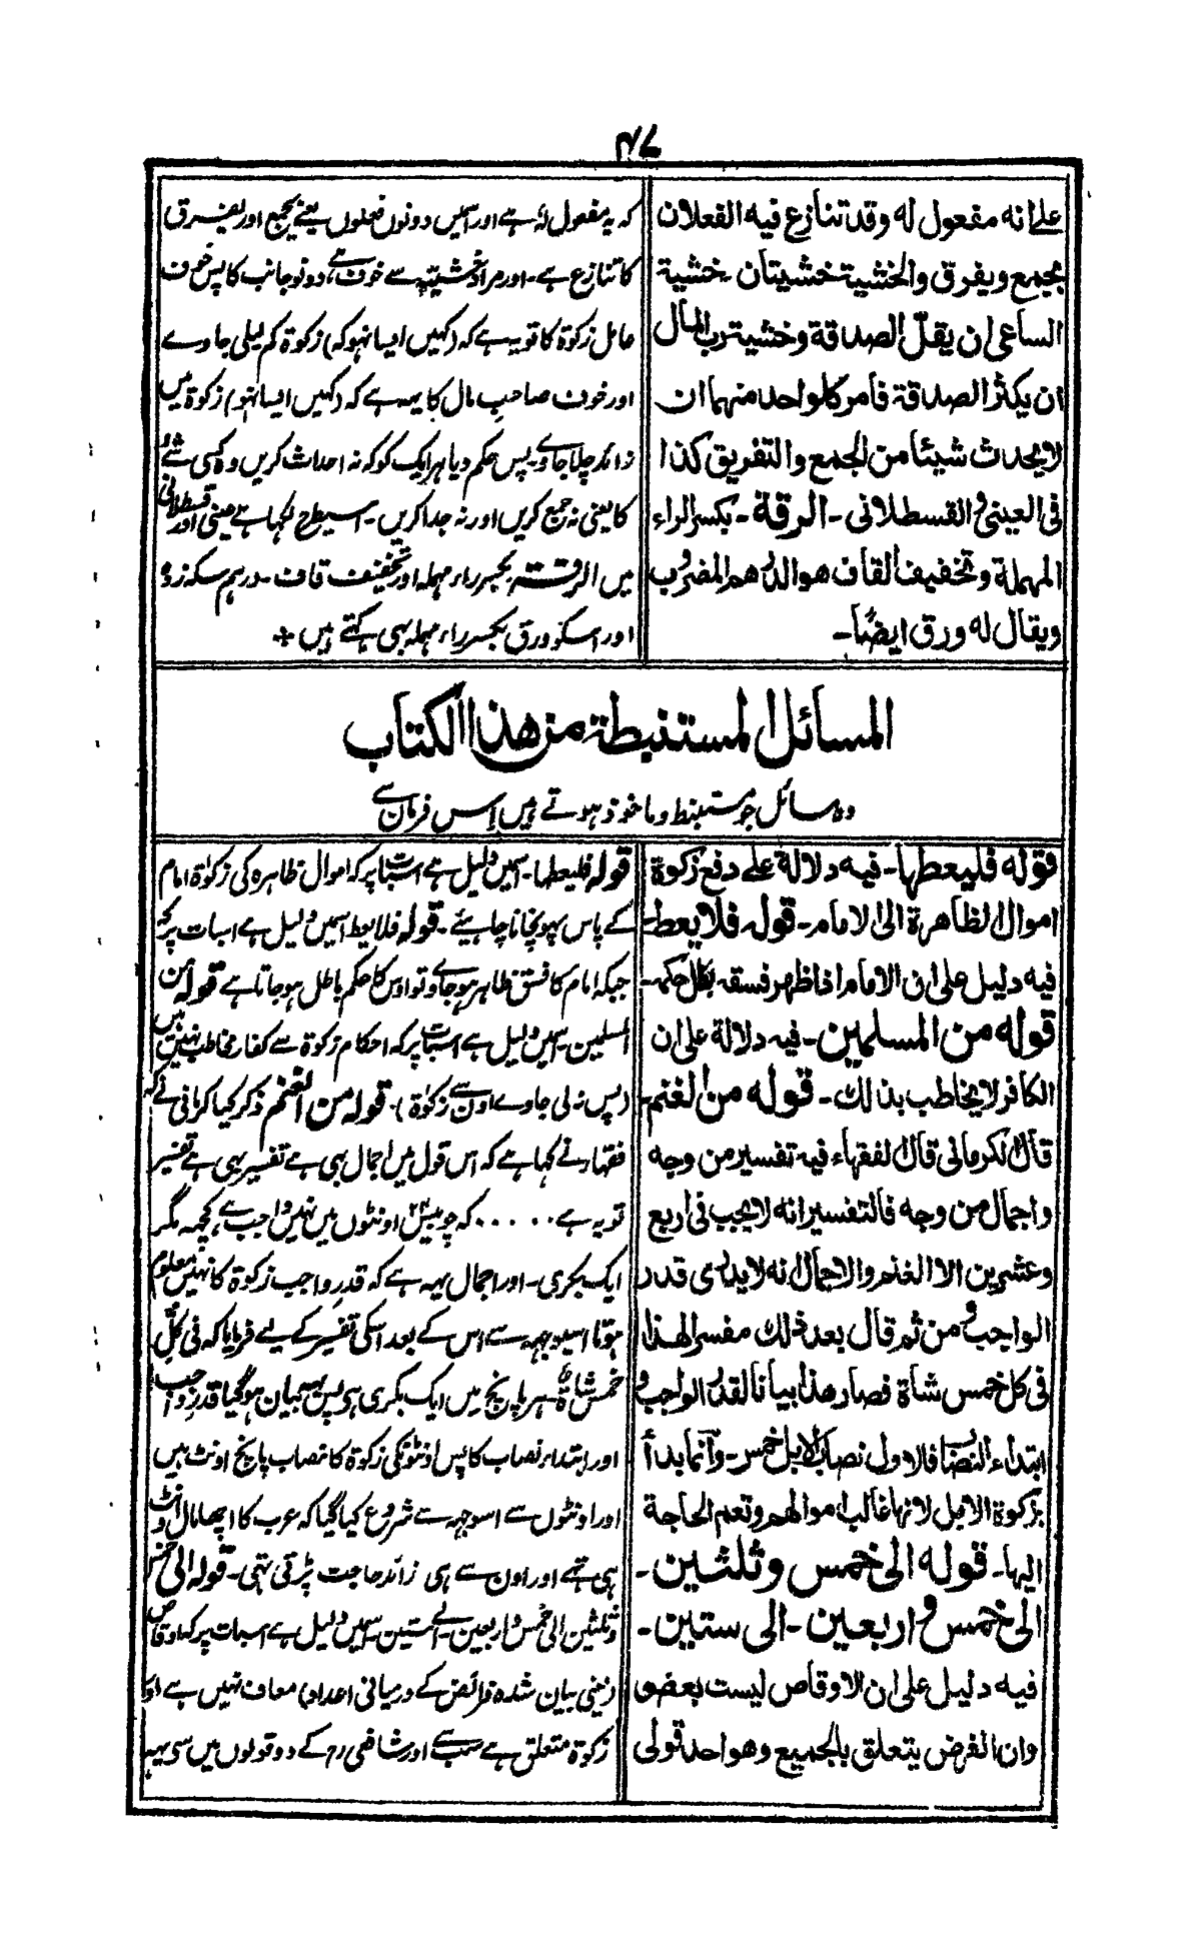 ۴۷
علی انه مفعول له وقد تنازع فیه الفعلان
یجمع ویفرق والخشیة خشیتان خشیة
الساعی ان یقل الصدقة وخشیة رب المال
ان یکثر الصدقة فامر کل واحد منهما ان
لا یحدث شیئا من الجمع والتفریق کذا
فی العینی و القسطلانی - الرقة - بکسر الراء
المهملة وتخفیف القاف هو الدرهم المضروب
ویقال له ورق ایضًا -
کہ یہ مفعول لہٗ ہے اور اسمیں دونوں فعلوں یعنے یجمع اور یفرق
کا تنازع ہے - اور مراد خشیۃ سے خوف ہے، دونو جانب کا پس خوف
عامل زکوٰۃ کا تو یہ ہے کہ (کہیں ایسا نہو کہ) زکوٰۃ کم لیلی جاوے
اور خوف صاحب مال کا یہ ہے کہ (کہیں ایسا نہو) زکوٰۃ میں
زائد چلا جاوے - پس حکم دیا ہر ایک کو کہ نہ احداث کریں وہ کسی شئے
کا یعنی نہ جمع کریں اور نہ جدا کریں - اسیطرح لکہا ہے عینی اور قسطلانی
میں الرقۃ بکسر راء مہملہ اور تخفیف قاف - درہم سکہ زدہ
اور اسکو ورق بکسر راء مہملہ بہی کہتے ہیں +
المسائل المستنبطة من هذا الکتاب
وہ مسائل جو مستنبط و ماخوذ ہوتے ہیں اس فرمان سے
قوله فلیعطها - فیه دلالة علی دفع زکوة
اموال الظاهرة الی الامام - قوله فلا یعط -
فیه دلیل علی ان الامام اذا ظهر فسقه بطل حکمه -
قوله من المسلمین - فیه دلالة علی ان
الکافر لا یخاطب بذالک - قوله من الغنم -
قال الکرمانی قال الفقهاء فیه تفسیر من وجه
واجمال من وجه فالتفسیر انه لا یجب فی اربع
وعشرین الا الغنم والاجمال انه لا یدری قدر
الواجب و من ثم قال بعد ذلک مفسرا لهذا
فی کل خمس شاة فصار هذا بیانا لقدر الواجب و
ابتداء النصاب فالاول نصاب الابل خمس - وانما بدأ
بزکوة الابل لانها غالب اموالهم وتعم الحاجة
الیها - قوله الی خمس وثلثین -
الی خمس و اربعین - الی ستین -
فیه دلیل علی ان الاوقاص لیست بعفو
وان الفرض یتعلق بالجمیع وهو احد قولی
قوله فلیعطہا - اسمیں دلیل ہے اسبات پر کہ اموال ظاہرہ کی زکوٰۃ امام
کے پاس پہونچانا چاہئیے - قوله فلا یعط اسمیں دلیل ہے اسبات پر کہ
جبکہ امام کا فسق ظاہر ہو جاوے تو اوس کا حکم باطل ہو جاتا ہے قوله من
المسلمین - اسمیں دلیل ہے اسبات پر کہ احکام زکوٰۃ سے کفار مخاطب نہیں ہیں
(پس نہ لی جاوے اون سے زکوٰۃ) قوله من الغنم ذکر کیا کرمانی نے کہ
فقہا نے کہا ہے کہ اس قول میں اجمال بہی ہے تفسیر بہی ہے تفسیر
تو یہ ہے ..... کہ چوبیس ۲۴ اونٹوں میں نہیں واجب ہے کچہہ مگر
ایک بکری - اور اجمال یہہ ہے کہ قدر واجب زکوٰۃ کا نہیں معلوم
ہوتا اسیوجہہ سے اس کے بعد اسکی تفسیر کے لیے فرمایا کہ فی کل
خمس شاۃ - ہر پانچ میں ایک بکری ہی پس یہہ بیان ہو گیا قدر واجب
اور ابتداء نصاب کا پس اونٹونکی زکوٰۃ کا نصاب پانچ اونٹ ہیں
اور اونٹوں سے اسوجہہ سے شروع کیا گیا کہ عرب کا اچہا مال اونٹ
ہی تہے اور اون سے ہی زائد حاجت پڑتی تہی - قوله الی خمس
وثلثین الی خمس و اربعین - الی ستین اسمیں دلیل ہے اسبات پر کہ اوقاص
(یعنی بیان شدہ فرائض کے درمیانی اعداد) معاف نہیں ہے اور
زکوٰۃ متعلق ہے سب سے اور شافعی رح کے دو قولوں میں سی یہہ